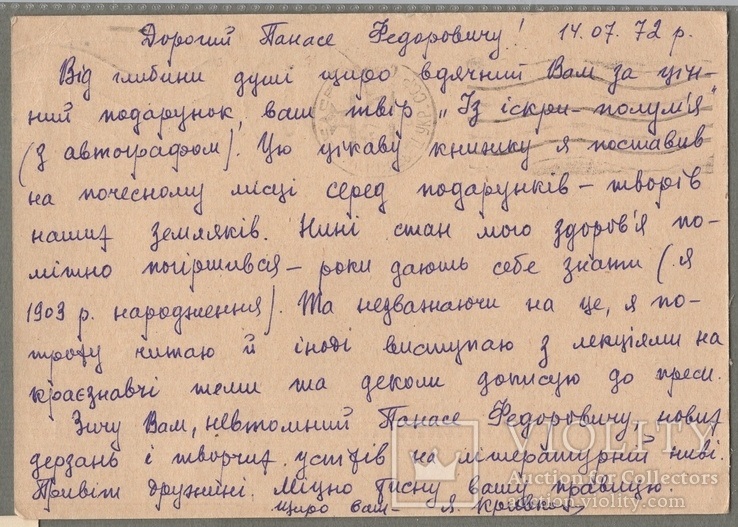 Дорогий Панасе Федоровичу! 14.07.72 р.
Від глибини душі щиро вдячний Вам за цін-
ний подарунок, ваш твір „Із іскри-полум'я"
(з автографом). Цю цікаву книжку я поставив
на почесному місці серед подарунків – творів
наших земляків. Нині стан мого здоров'я по-
мітно погіршився – роки дають себе знати (я
1903 р. народження). Та незважаючи на це, я по-
троху читаю й іноді виступаю з лекціями на
краєзнавчі теми та деколи дописую до преси.
Зичу Вам, невтомний Панасе Федоровичу, нових
дерзань і творчих успіхів на літературній ниві.
Привіт дружині. Міцно тисну вашу правицю
щиро ваш – Я.
VIOLITY
Auction for Collectors
auction.violity.com